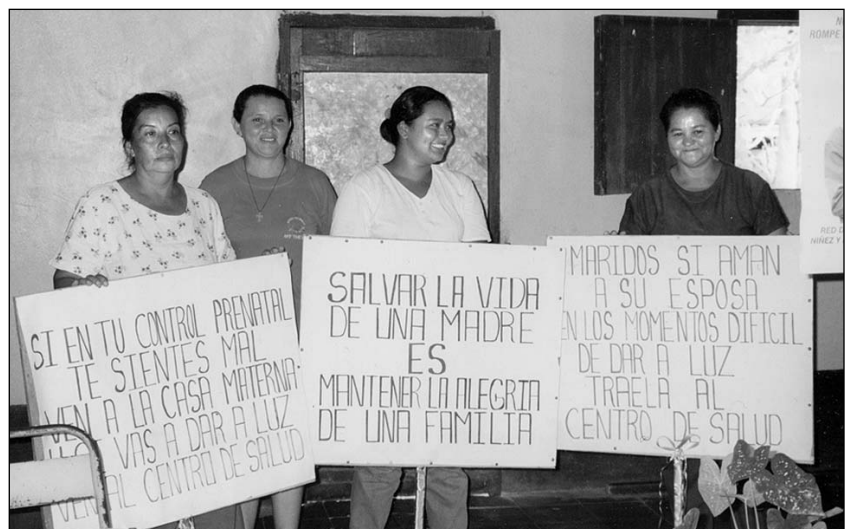 SI EN TU CONTROL PRENATAL
TE SIENTES MAL
VEN A LA CASA MATERNA
VAS A DAR A LUZ
VEN AL CENTRO DE SALUD
SALVAR LA VIDA
DE UNA MADRE
ES
MANTENER LA ALEGRIA
DE UNA FAMILIA
MARIDOS SI AMAN
A SU ESPOSA
EN LOS MOMENTOS DIFICIL
DE DAR A LUZ
TRAELA AL
CENTRO DE SALUD
ROMPE
RED D
NIÑEZ Y